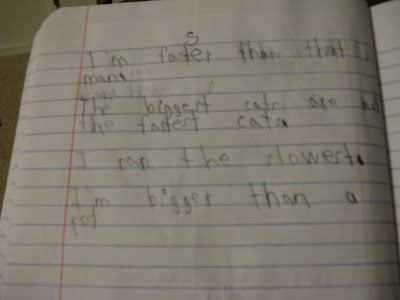 I'm faster than that
man.
The biggest cats are
the fastest cats.
I ran the slowest.
I'm bigger than a
pot